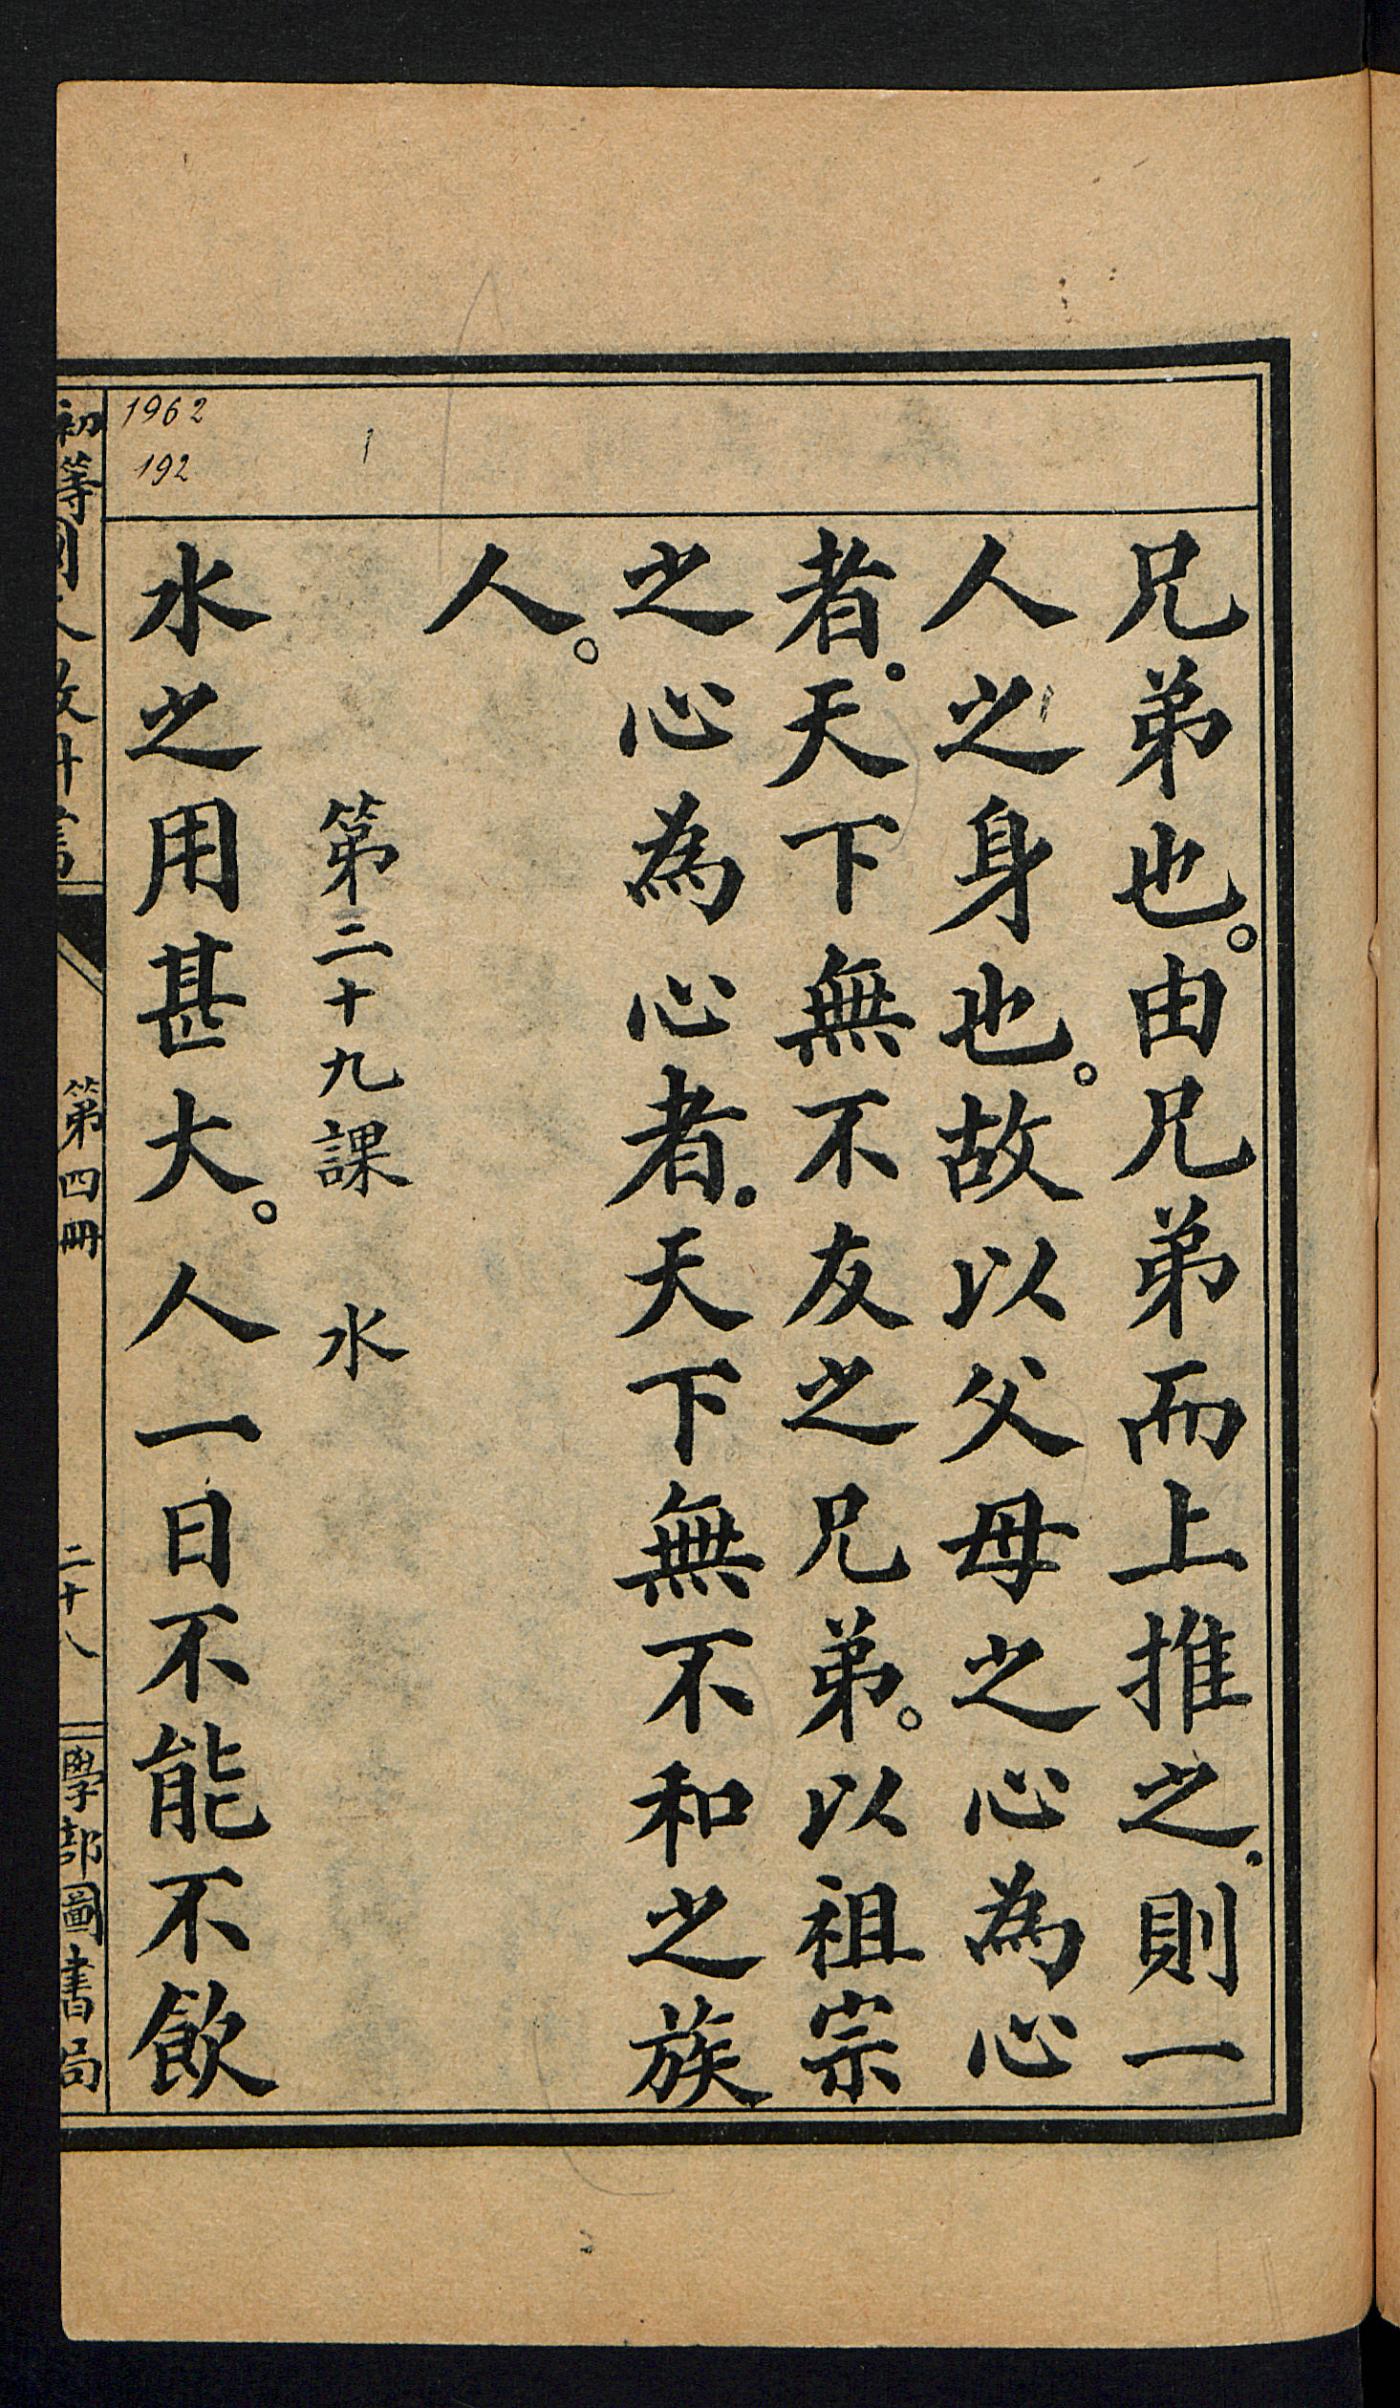 兄弟也。由兄弟而上推之．則一
人之身也。故以父母之心為心
者．天下無不友之兄弟。以祖宗
之心為心者．天下無不和之族
人。
第二十九課　水
水之用甚大。人一日不能不飲
初等國文教科書
第四冊
二十八
學部圖書局
1962
192